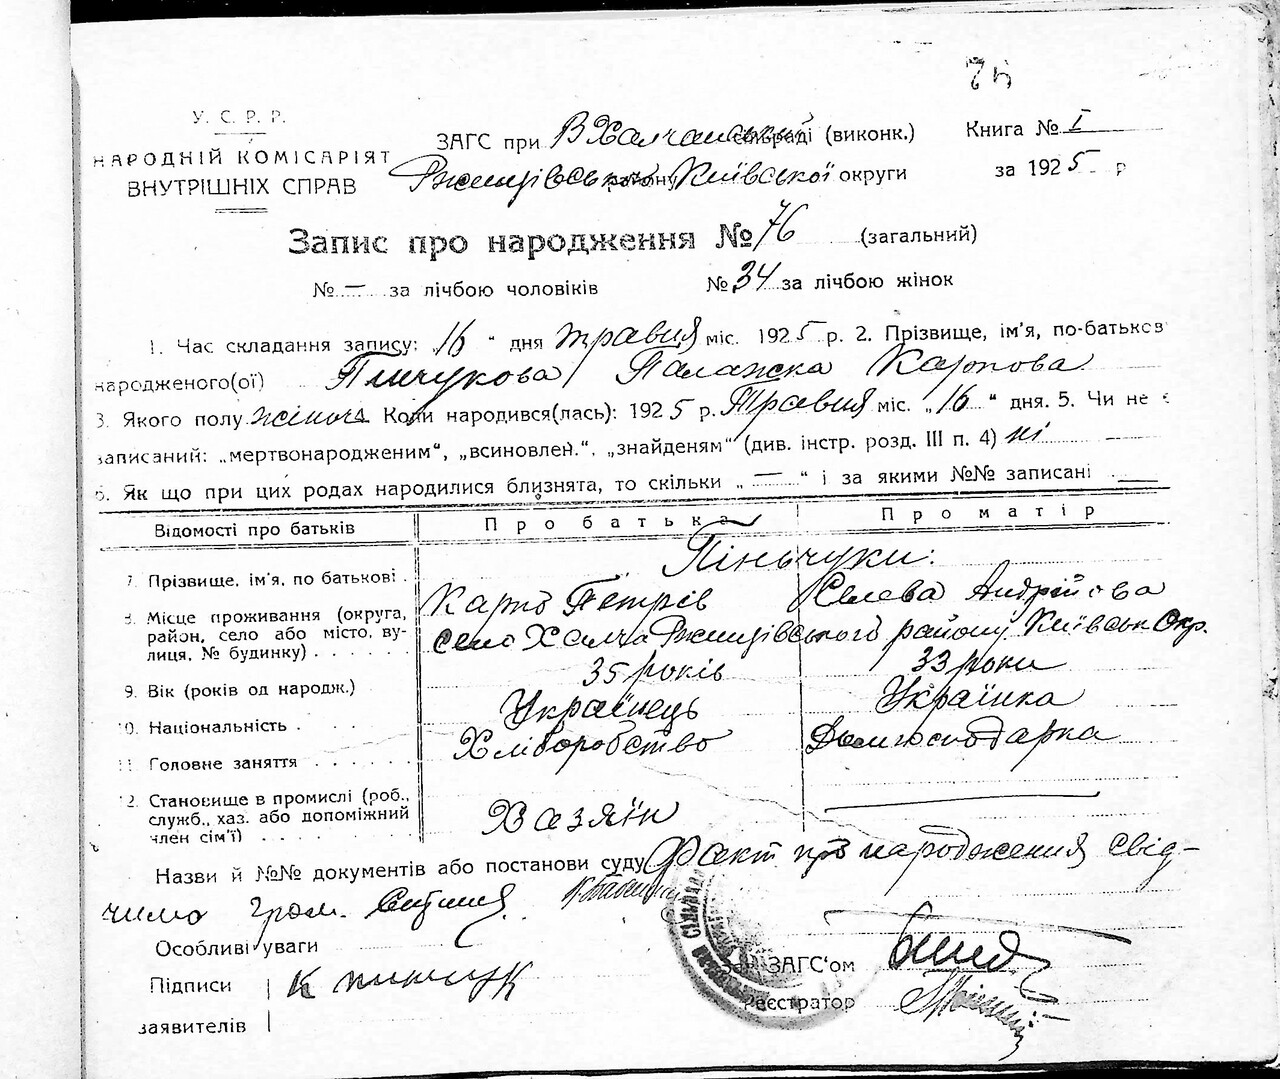 У. С. Р. Р.
НАРОДНІЙ КОМІСАРІЯТ
ВНУТРІШНІХ СПРАВ
ЗАГС при ВХалчанській сільраді (виконк.)
Ржищівського району Київської округи
Книга № I
за 1925 р
Запис про народження № 76 (загальний)
№ — за лічбою чоловіків № 34 за лічбою жінок
1. Час складання запису: „16“ дня травня міс. 1925 р. 2. Прізвище, ім'я, по-батьков
народженого(ої) Пінчукова Палажка Карпова
3. Якого полу жіноч. Коли народився(лась): 1925 р. Травня міс. „16“ дня. 5. Чи не є
записаний: „мертвонародженим“, „всиновлен.“, „знайденям“ (див. інстр. розд. III п. 4) ні
6. Як що при цих родах народилися близнята, то скільки „—“ і за якими №№ записані —
Відомості про батьків Про батька Про матір
Піньчуки:
7. Прізвище, ім'я, по батькові . Карпо Петрів Андрійова
8. Місце проживання (округа,
район, село або місто, ву-
лиця, № будинку) . . . . . . село Халча Ржищівського району Київськ Окр.
9. Вік (років од народж.) 35 років 33 роки
10. Національність . Українець Українка
11. Головне заняття . . . . . . Хліборобство Домгосподарка
12. Становище в промислі (роб.,
служб., хаз. або допоміжний
член сім'ї) . . . . . . . . Хазяїн —
Назви й №№ документів або постанови суду Факт про народження свід-
чимо гром.
Особливі уваги
Підписи К пинчук
заявителів
Зав. ЗАГС'ом
Реєстратор